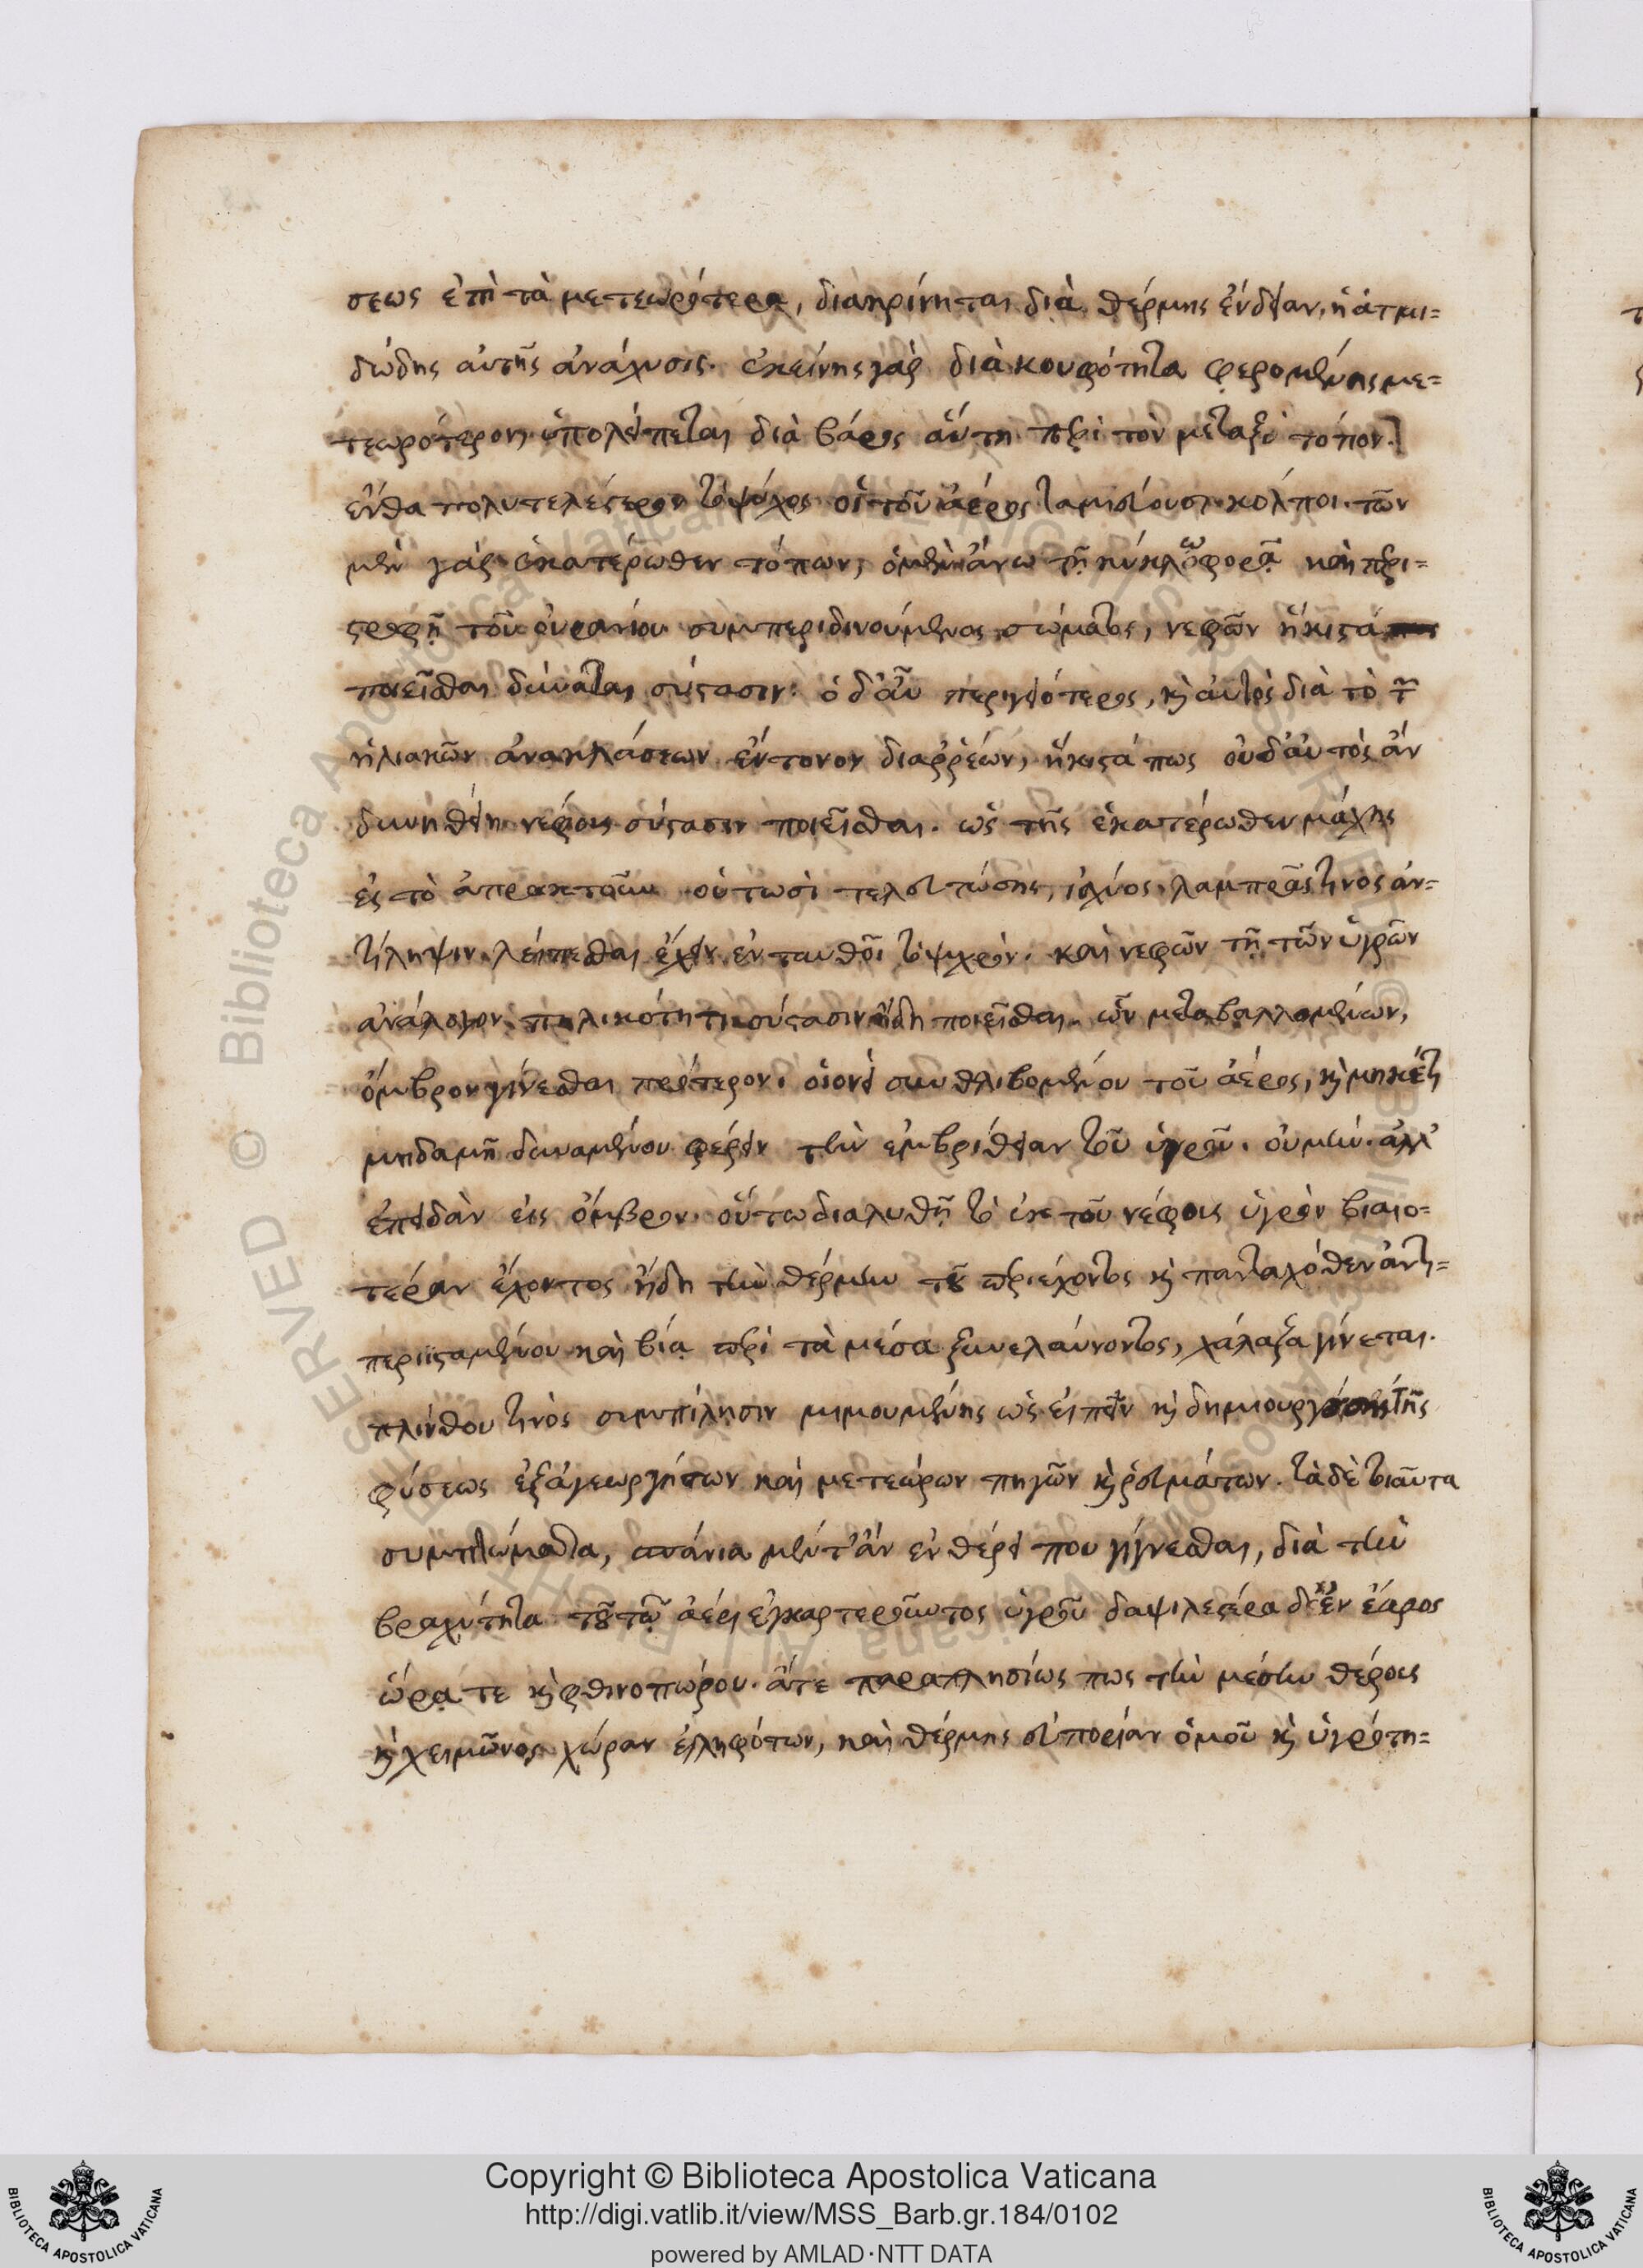 σεως ἐπὶ τὰ μετεωρότερα, διακρίνηται διὰ θέρμης ἔνδειαν, ἡ ἀτμι=
δώδης αὐτῆς ἀνάχυσις. ἐκείνης γὰρ διὰ κουφότητα φερομένης με=
τεωρότερον ὑπολείπεται διὰ βάρος αὕτη περὶ τὸν μεταξὺ τόπον.]
ἔνθα πολυτελέστερον τὸ ψύχος οἱ τοῦ ἀέρος ταμιεύουσι κόλποι. τῶν
μὲν γὰρ ἑκατέρωθεν τόπων, ὁ μὲν ἄνω τῇ κύκλω φορᾷ καὶ περι=
στροφῇ τοῦ οὐρανίου συμπεριδινούμενος σώματος, νεφῶν ἥκιστα
ποιεῖσθαι δύναται σύστασιν. ὁ δ' αὖ περιγειότερος, καὶ αὐτὸς διὰ τὸ τῶν
ἡλιακῶν ἀνακλάσεων ἔντονον διαῤῥέων, ἥκιστά πως οὐδ' αὐτὸς ἂν
δυνηθείη νέφους σύστασιν ποιεῖσθαι. ὡς τῆς ἑκατέρωθεν μάχης
εἰς τὸ ἀπρακτοῦν οὑτωσὶ τελευτώσης, ἰσχύος λαμπρᾶς τινος ἀν=
τίληψιν λείπεσθαι ἔχειν ἐνταυθοῖ τὸ ψυχρόν. καὶ νεφῶν τῇ τῶν ὑγρῶν
ἀνάλογον πηλικότητι σύστασιν ἤδη ποιεῖσθαι. ὧν μεταβαλλομένων,
ὄμβρον γίνεσθαι πρότερον. οἱονεὶ συνθλιβομένου τοῦ ἀέρος, καὶ μηκέτι
μηδαμῆ δυναμένου φέρειν τὴν ἐμβρίθειαν τοῦ ὑγροῦ. οὐ μὴν ἀλλ'
ἐπειδὰν εἰς ὄμβρον οὕτω διαλυθῇ τὸ ἐκ τοῦ νέφους ὑγρὸν βιαιο=
τέραν ἔχοντος ἤδη τὴν θέρμην τοῦ περιέχοντος καὶ πανταχόθεν ἀντι=
περιϊσταμένου καὶ βίᾳ περὶ τὰ μέσα ξυνελαύνοντος, χάλαζα γίνεται.
πλίνθου τινὸς συμπίλησιν μιμουμένης ὡς εἰπεῖν καὶ δημιουργούσης τῆς
φύσεως ἐξ ἀγεωργήτων καὶ μετεώρων πηγῶν καὶ ῥευμάτων. τὰ δὲ τοιαῦτα
συμπτώματα, σπάνια μέντ' ἂν ἐν θέρει που γίγνεσθαι, διὰ τὴν
βραχύτητα τοῦ τῷ ἀέρι ἐγκαρτεροῦντος ὑγροῦ δαψιλέστερα δὲ ἐν ἔαρος
ὥρᾳ τε καὶ φθινοπώρου. ἅτε παραπλησίως πως τὴν μέσην θέρους
καὶ χειμῶνος χώραν εἰληφότων, καὶ θέρμης εὐπορίαν ὁμοῦ καὶ ὑγρότη=
Copyright © Biblioteca Apostolica Vaticana
http://digi.vatlib.it/view/MSS_Barb.gr.184/0102
powered by AMLAD·NTT DATA